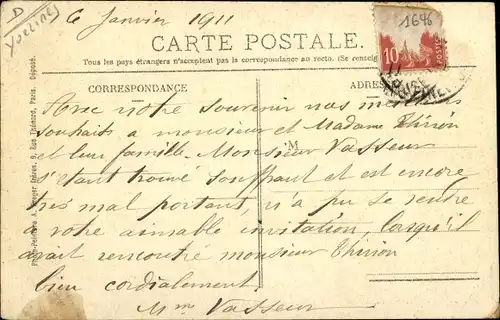 D
Yvelines
6 Janvier 1911
1646
10
POSTES
CARTE POSTALE.
Tous les pays étrangers n'acceptent pas la correspondance au recto. (Se renseig
CORRESPONDANCE
ADRES
M
Avec notre souvenir nos meilleurs
souhaits a monsieur et Madame Thirion
et leur famille. Monsieur Vasseur
s'etant trouvé souffrant et est encore
tres mal portant, n'a pu se rendre
a votre aimable invitation, lorsqu'il
avait rencontré monsieur Thirion
bien cordialement
Mme Vasseur
Breger frères, 9, Rue Thénard, Paris. Déposé.